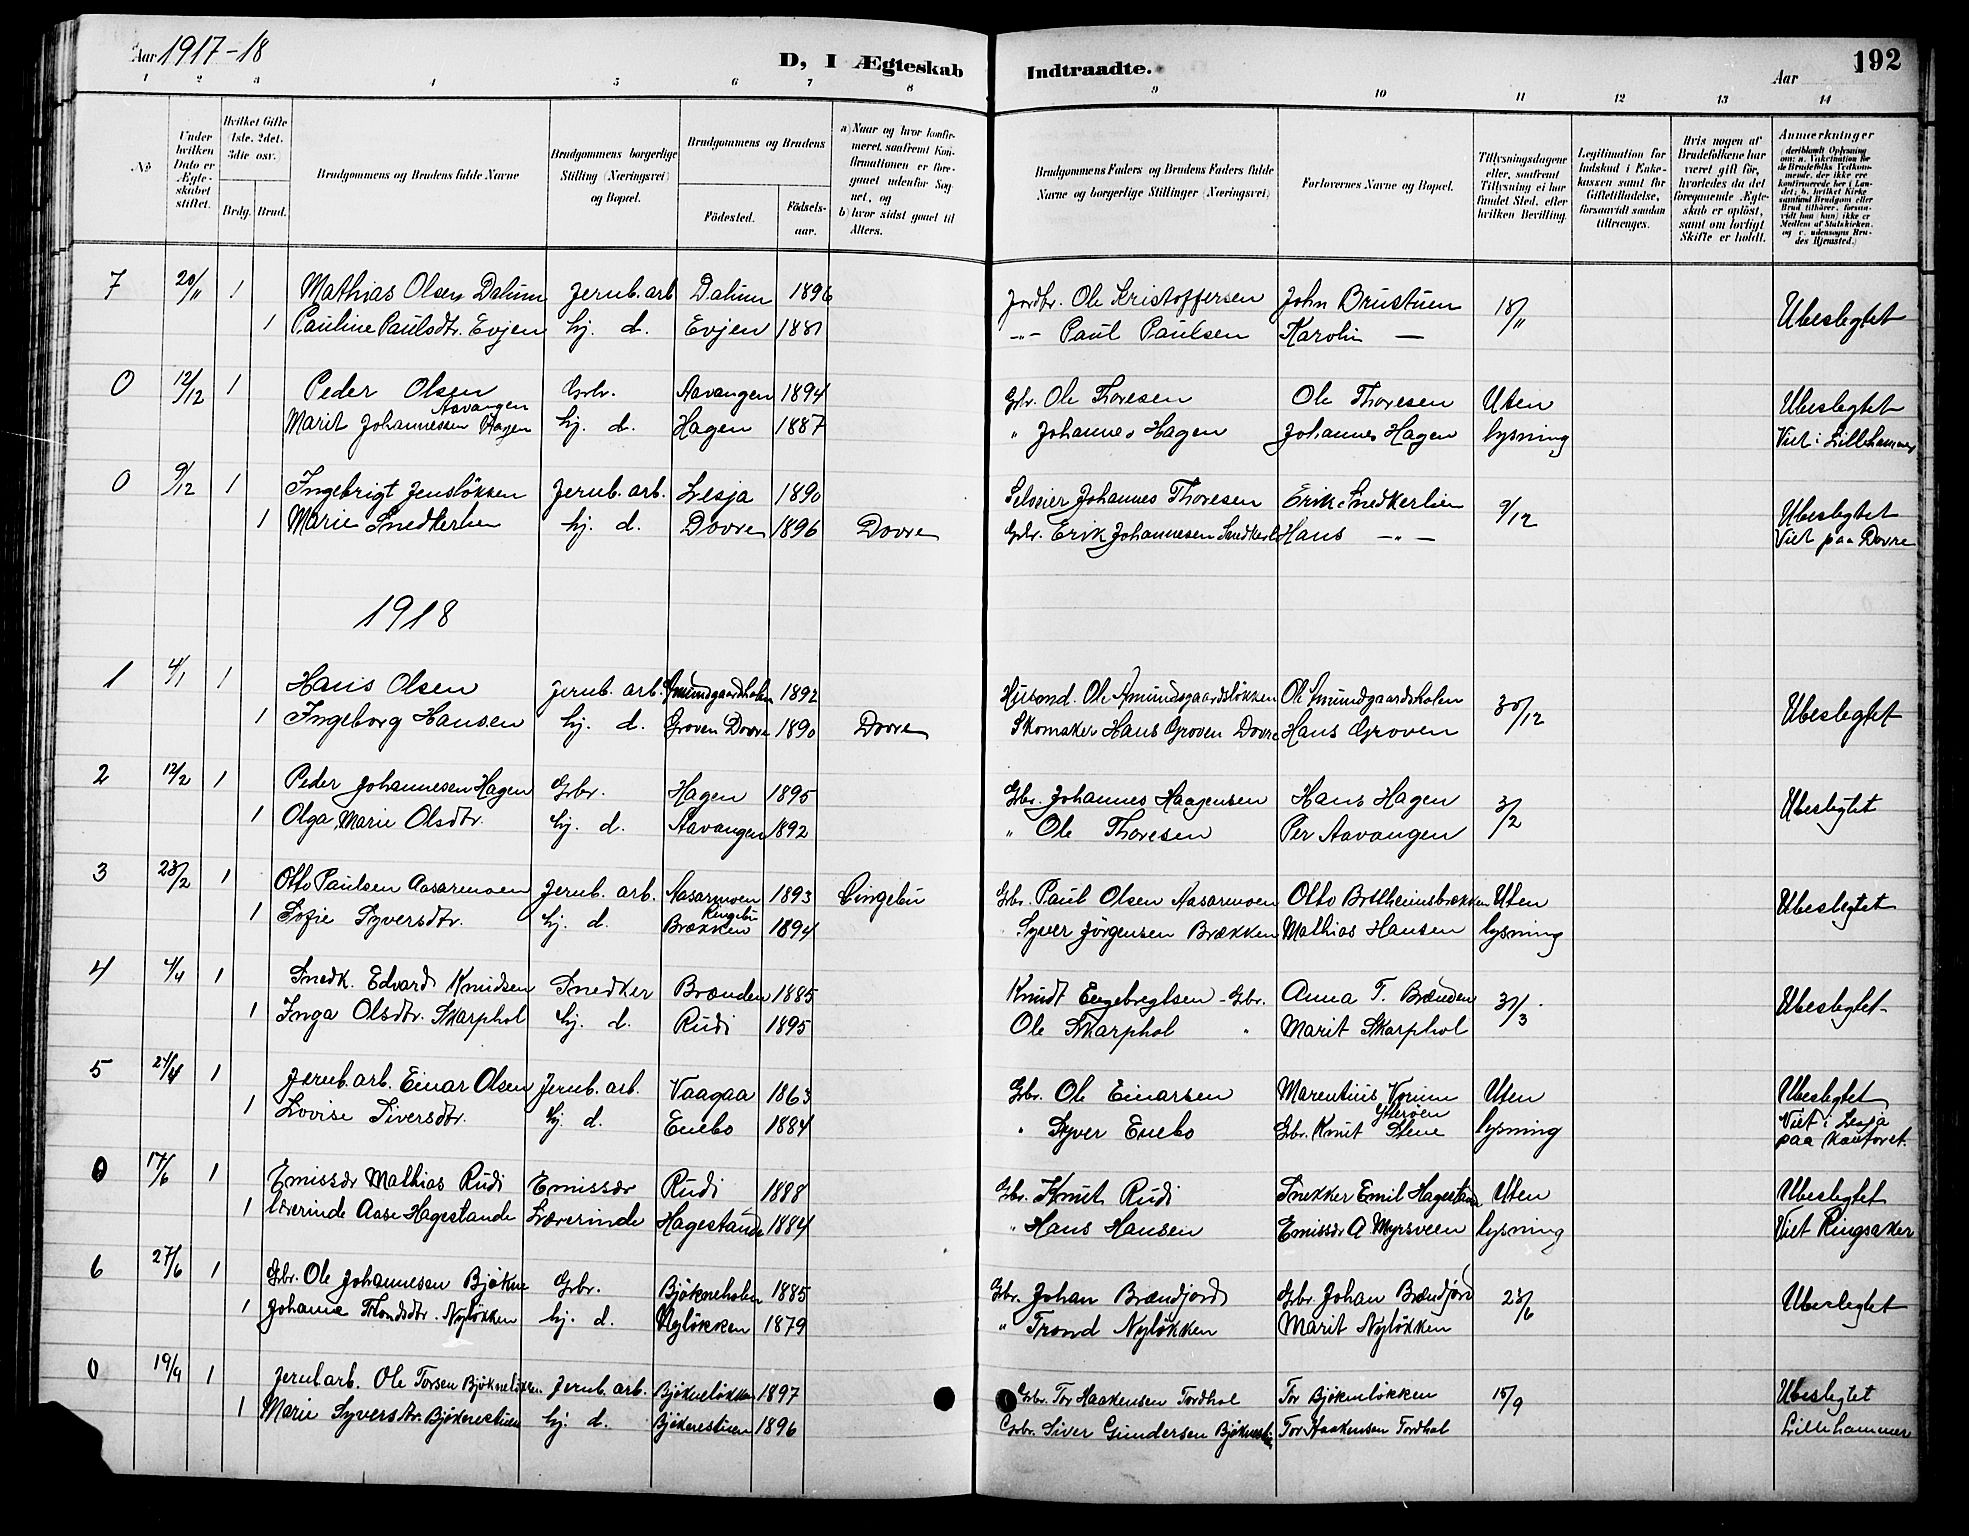 Aar 1917-18
D, I Ægteskab Indtraadte.
Aar 192
1 2 3 4 5 6 7 8 9 10 11 12 13 14
No
Under hvilken Dato er Ægteskabet stiftet.
Hvilket Gifte (1ste, 2det, 3dte osv.
Brdg. Brud.
Brudgommens og Brudens fulde Navne
Brudgommens borgerlige Stilling (Næringsvei) og Bopæl.
Brudgommens og Brudens
Fødested. Fødselsaar.
a) Naar og hvor konfirmeret, saafremt Konfirmationen er foregaaet udenfor Sognet, og
b) hvor sidst gaaet til Alters.
Brudgommens Faders og Brudens Faders fulde Navne og borgerlige Stillinger (Næringsvei)
Forlovernes Navne og Bopæl.
Tillysningsdagene eller, saafremt Tillysning ei har fundet Sted, efter hvilken Bevilling.
Legitimation for Indskud i Enkekassen samt for Giftetilladelse, forsaavidt saadan tiltrænges.
Hvis nogen af Brudefolkene har været gift før, hvorledes da det foregaaende Ægteskab er opløst, samt om lovligt Skifte er holdt.
Anmærkninger
7 20/11 1 Mathias Olsen Dalum Jernb. arb Dalum 1896 Jordbr. Ole Kristoffersen John Brustuen 18/11 Ubeslegtet
1 Pauline Paulsdtr. Evjen hj. d. Evjen 1881 -"- Paul Paulsen Karolin —
0 12/12 1 Peder Olsen Aavangen Grbr. Aavangen 1894 Gbr. Ole Thoresen Ole Thoresen Uten Ubeslegtet
Marit Johannessen Hagen hj. d. Hagen 1887 " Johannes Hagen Johannes Hagen lysning Viet i Lillehammer
0 9/12 1 Ingebrigt Jensløkken Jernb. arb. Lesja 1890 Johannes Thoresen Erik Snedkerlien 9/12 Ubeslegtet
1 Marie Snedkerlien hj. d. Dovre 1896 Dovre Gbr. Erik Johannesen Hans -"- Viet paa Dovre
1918
1 4/1 1 Hans Olsen Jernb. arb. Amundgaardholen 1892 Husmd. Ole Amundsgaardsløkken Ole Amundgaardsholen 30/12 Ubeslegtet
1 Ingeborg Hansen hj. d. Groven Dovre 1890 Dovre Skomaker Hans Groven Dovre Hans Groven
2 12/2 1 Peder Johannesen Hagen Grbr. Hagen 1895 Gbr. Johannes Haagensen Hans Hagen 3/2 Ubeslegtet
1 Olga Marie Olsdtr. hj. d. Aavangen 1892 " Ole Thoresen Per Aavangen
3 23/2 1 Otto Paulsen Aasarmoen Jernb. arb. Aasarmoen 1893 Ringebu Gbr. Paul Olsen Aasarmoen Otto Bottheimsbrækken Uten Ubeslegtet
1 Sofie Syversdtr. hj. d. Ringebu Brækken 1894 Syver Jørgensen Brækken Mathias Hansen lysning
4 4/4 1 Snedk. Edvard Knudsen Snedker Brænden 1885 Knudt Engebregtsen - Gbr. Anna T. Brænden 31/3 Ubeslegtet
1 Inga Olsdtr. Skarphol hj. d. Rudi 1895 Ole Skarphol " Marit Skarphol
5 24/4 1 Jernb. arb. Einar Olsen Jernb. arb. Vaagaa 1863 Gbr. Ole Einarsen Marentius Uten Ubeslegtet
1 Lovise Siversdtr. hj. d. Enebo 1884 " Syver Enebo Gbr. Knut Stene lysning Viet i Lesja paa kontoret.
0 17/6 1 Emissær Mathias Rudi Emissær Rudi 1888 Gbr. Knut Rudi Snekker Emil Hagestande Uten Ubeslegtet
1 Lærerinde Aase Hagestande Lærerinde Hagestande 1884 " Hans Hansen Emissær A Myrsveen lysning Viet Ringsaker
6 27/6 1 Gbr. Ole Johannesen Bjøkne Grbr. Bjøkneholen 1885 Gbr. Johan Brændjord Gbr. Johan Brændjord 23/6 Ubeslegtet
1 Johanne Trondsdtr. Nyløkken hj. d. Nyløkken 1879 " Trond Nyløkken Marit Nyløkken
0 19/9 1 Jernb arb. Ole Torsen Bjøkneløkken Jernb. arb. Bjøkneløkken 1897 Gbr. Tor Haakensen Tordhol Tor Bjøkneløkken 15/9 Ubeslegtet
1 Marie Syversdtr. Bjøknestuen hj. d. Bjøknestuen 1896 Grbr. Siver Gundersen Bjøknestuen Tor Haakensen Tordhol Lillehammer